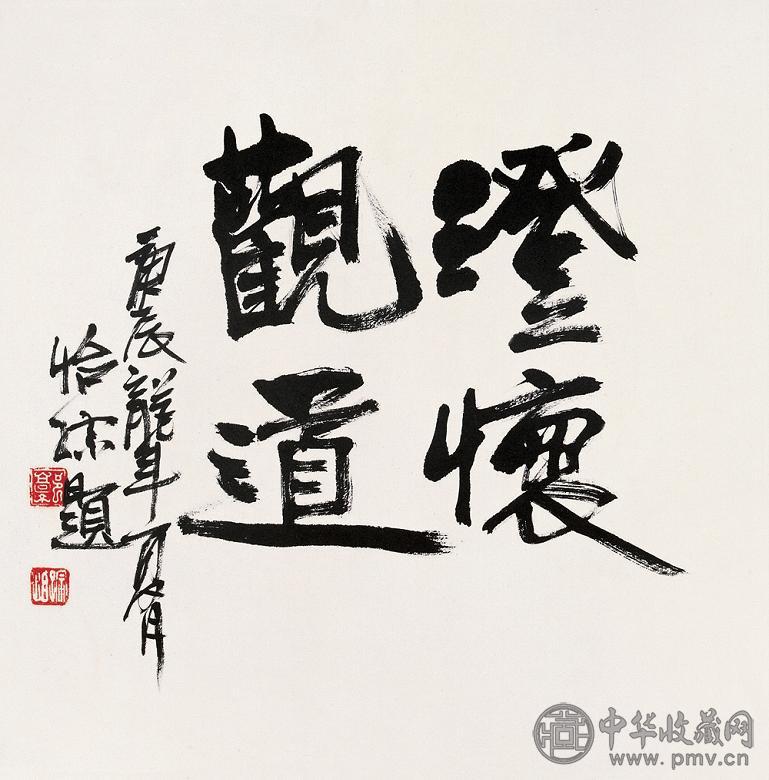 澄懷
觀道
庚辰龍年夏月
怡孮題
中华收藏网
www.pmv.cn